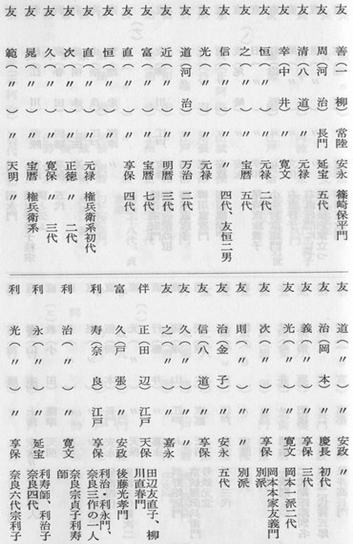 友 善(一 柳)常陸 安永 篠崎保平門
友 周(河 治)長門 延宝 五代
友 清(八 道)〃 元禄
友 幸(中 井)〃 寛文
友 恒(〃)〃 元禄 二代
友 之(〃)〃 宝暦 五代
友 信(〃)〃 四代、友恒二男
友 光(〃)〃 元禄
友 道(河 治)〃 万治 二代
友 近(〃)〃 明暦 三代
友 富(〃)〃 宝暦 七代
友 直(〃)〃 享保 四代
友 恒(〃)〃
友 直(〃)〃 元禄 権兵衛系初代
友 次(〃)〃 正徳 〃 二代
友 久(〃)〃 寛保 〃 三代
友 晃(〃)〃 宝暦 権兵衛系
友 範(〃)〃 天明 〃
友 道(〃)〃 安政 〃
友 治(岡 本)〃 慶長 初代
友 義(〃)〃 享保 三代
友 光(〃)〃 寛文 岡本一派二代
友 次(〃)〃 享保 岡本本家友義門
別派
友 則(〃)〃 〃 別派
友 治(金 子)〃 安永 五代
友 信(八 道)〃 享保
友 久(〃)〃 〃
友 之(〃)〃 嘉永
伴 正(田 辺)江戸 天保 田辺友直子、柳
川直春門
富 久(戸 張)〃 安政 後藤光孝門
利 寿(奈 良)江戸 享保 利治・利永門、
奈良三作の一人
利 治(〃)〃 寛文 奈良宗貞子利寿
師
利 永(〃)〃 延宝 利寿師、利治子
奈良四代
利 光(〃)〃 享保 奈良六代宗利子